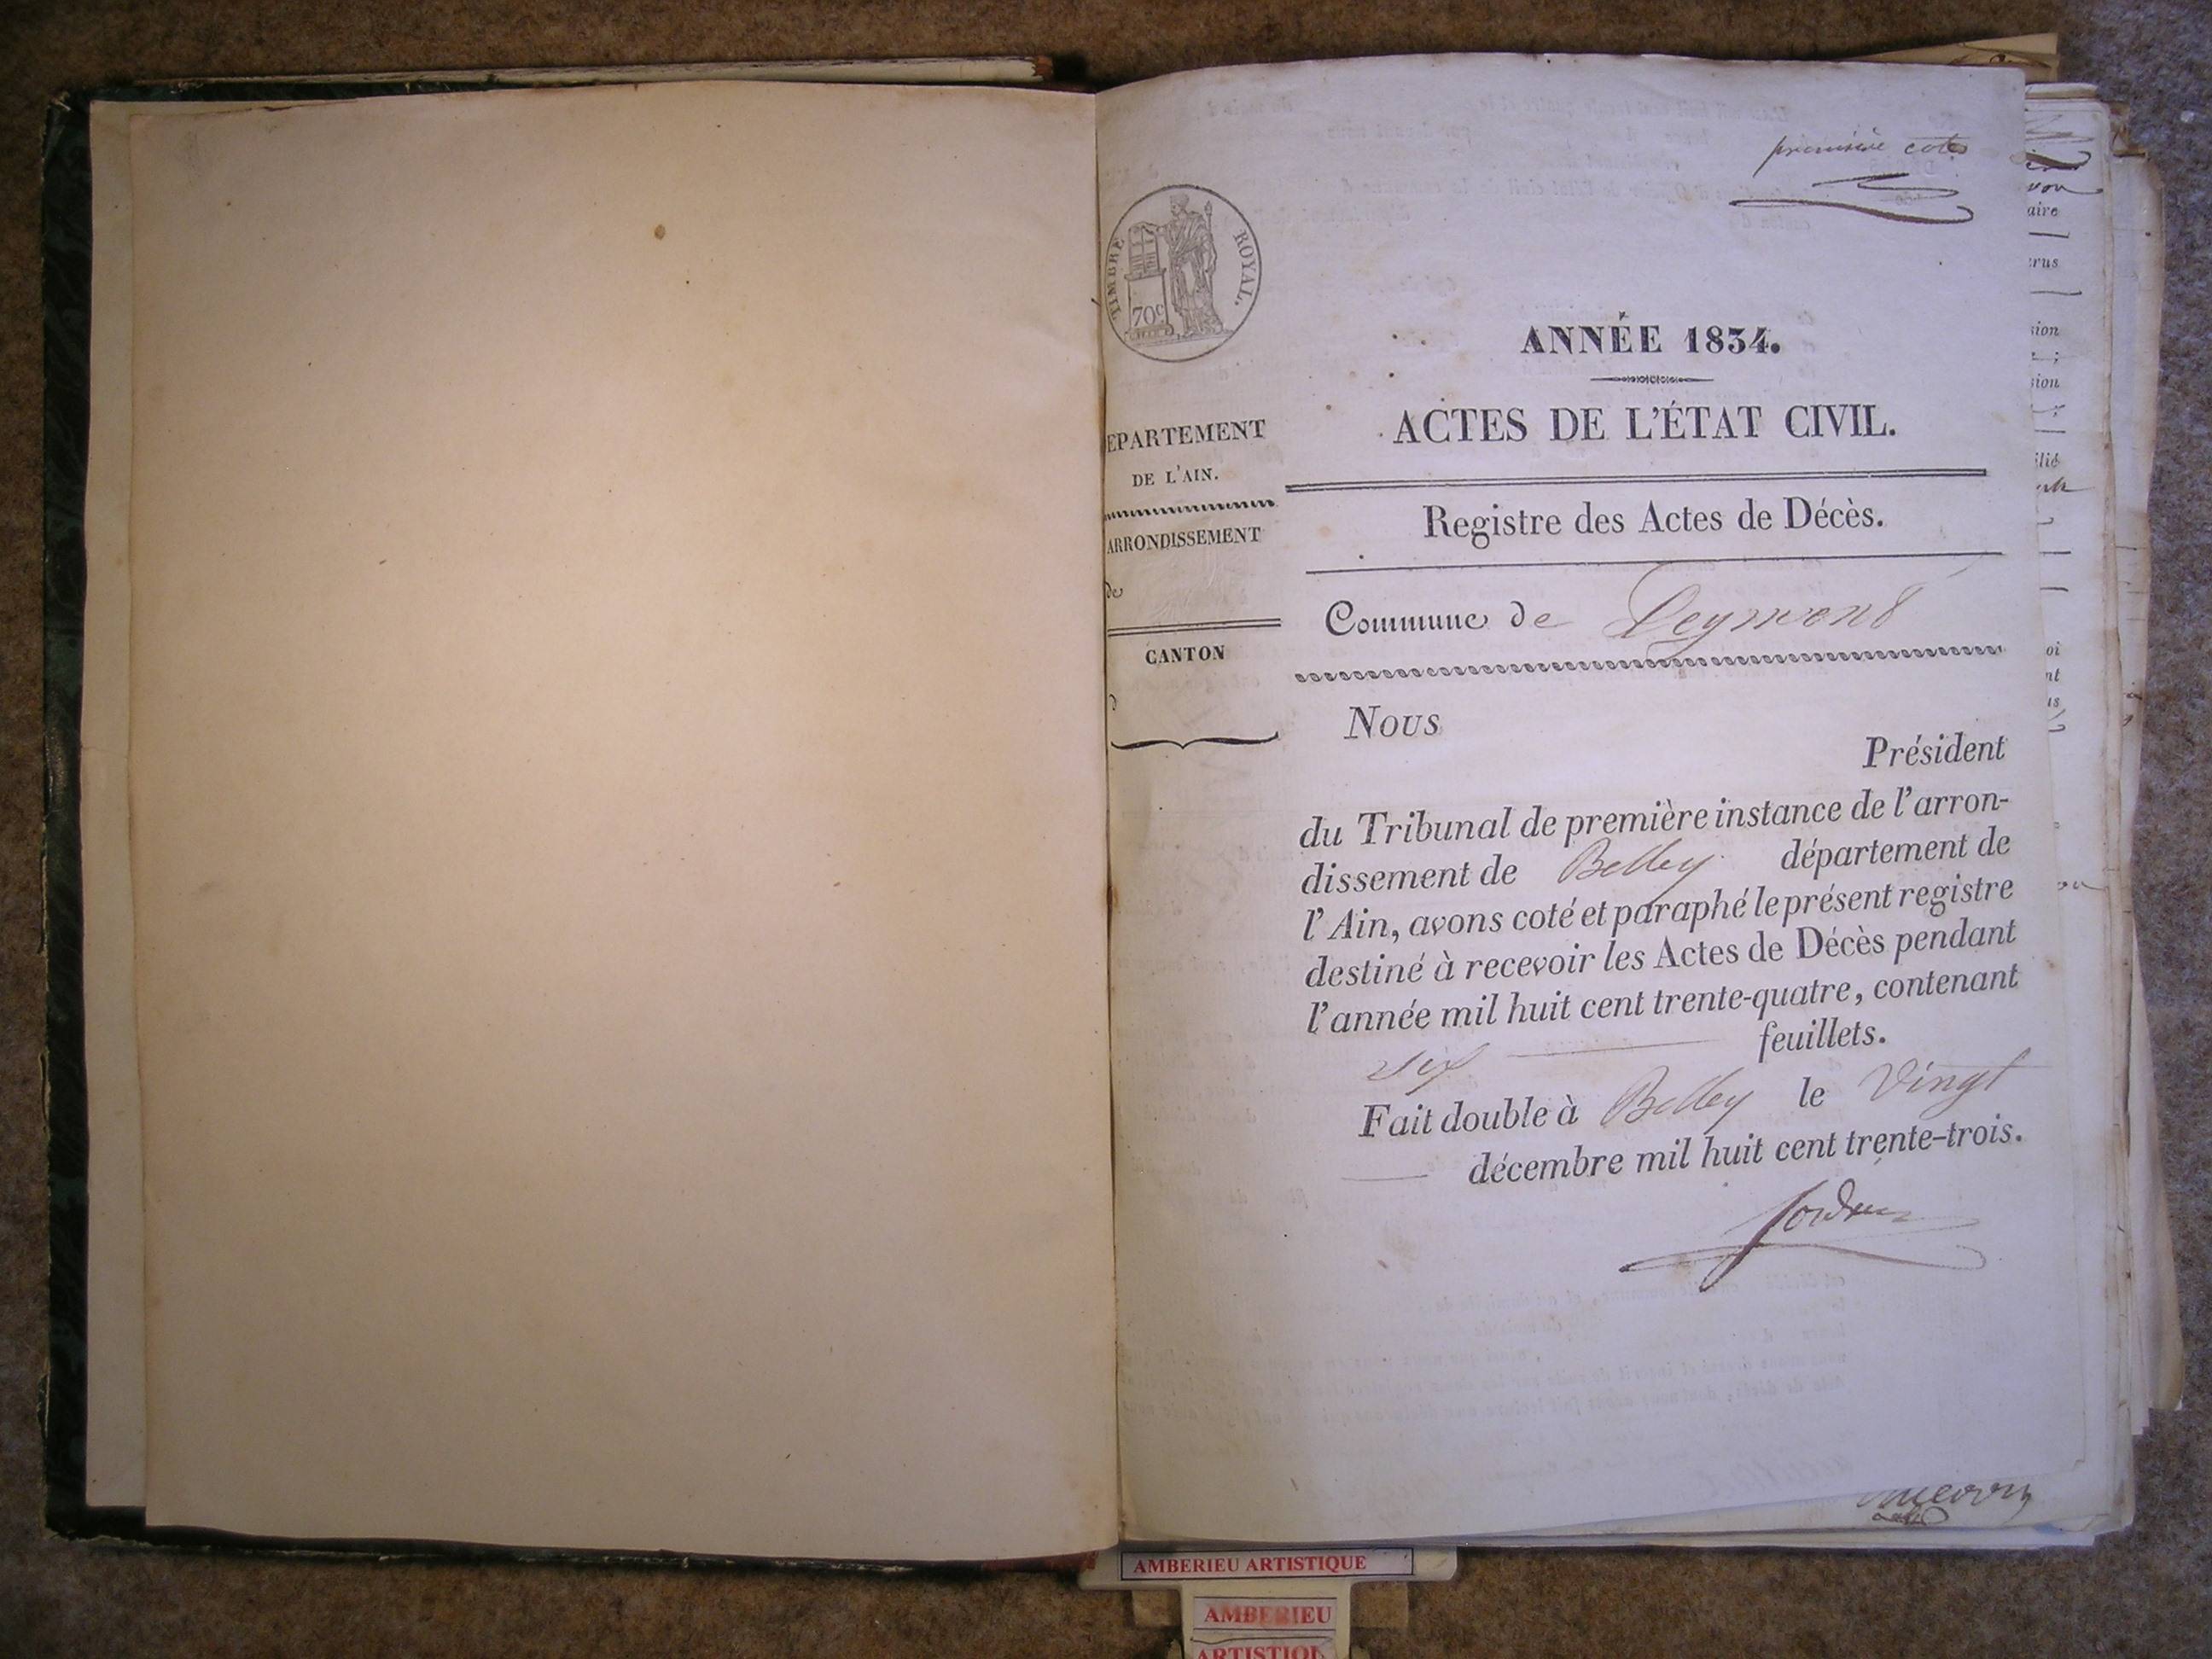 première cote
TIMBRE ROYAL.
70c
ANNÉE 1834.
ACTES DE L'ÉTAT CIVIL.
EPARTEMENT
DE L'AIN.
ARRONDISSEMENT
de
CANTON
d
Registre des Actes de Décès.
Commune de
Nous
Président
du Tribunal de première instance de l'arron-
dissement de Belley département de
l'Ain, avons coté et paraphé le présent registre
destiné à recevoir les Actes de Décès pendant
l'année mil huit cent trente-quatre, contenant
six feuillets.
Fait double à Belley le Vingt
décembre mil huit cent trente-trois.
AMBERIEU ARTISTIQUE
AMBERIEU